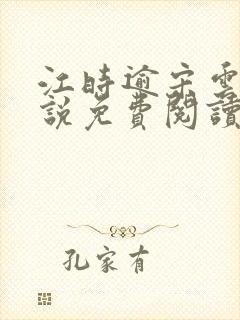 江時逾宋雲
說免費閱讀
孔家有